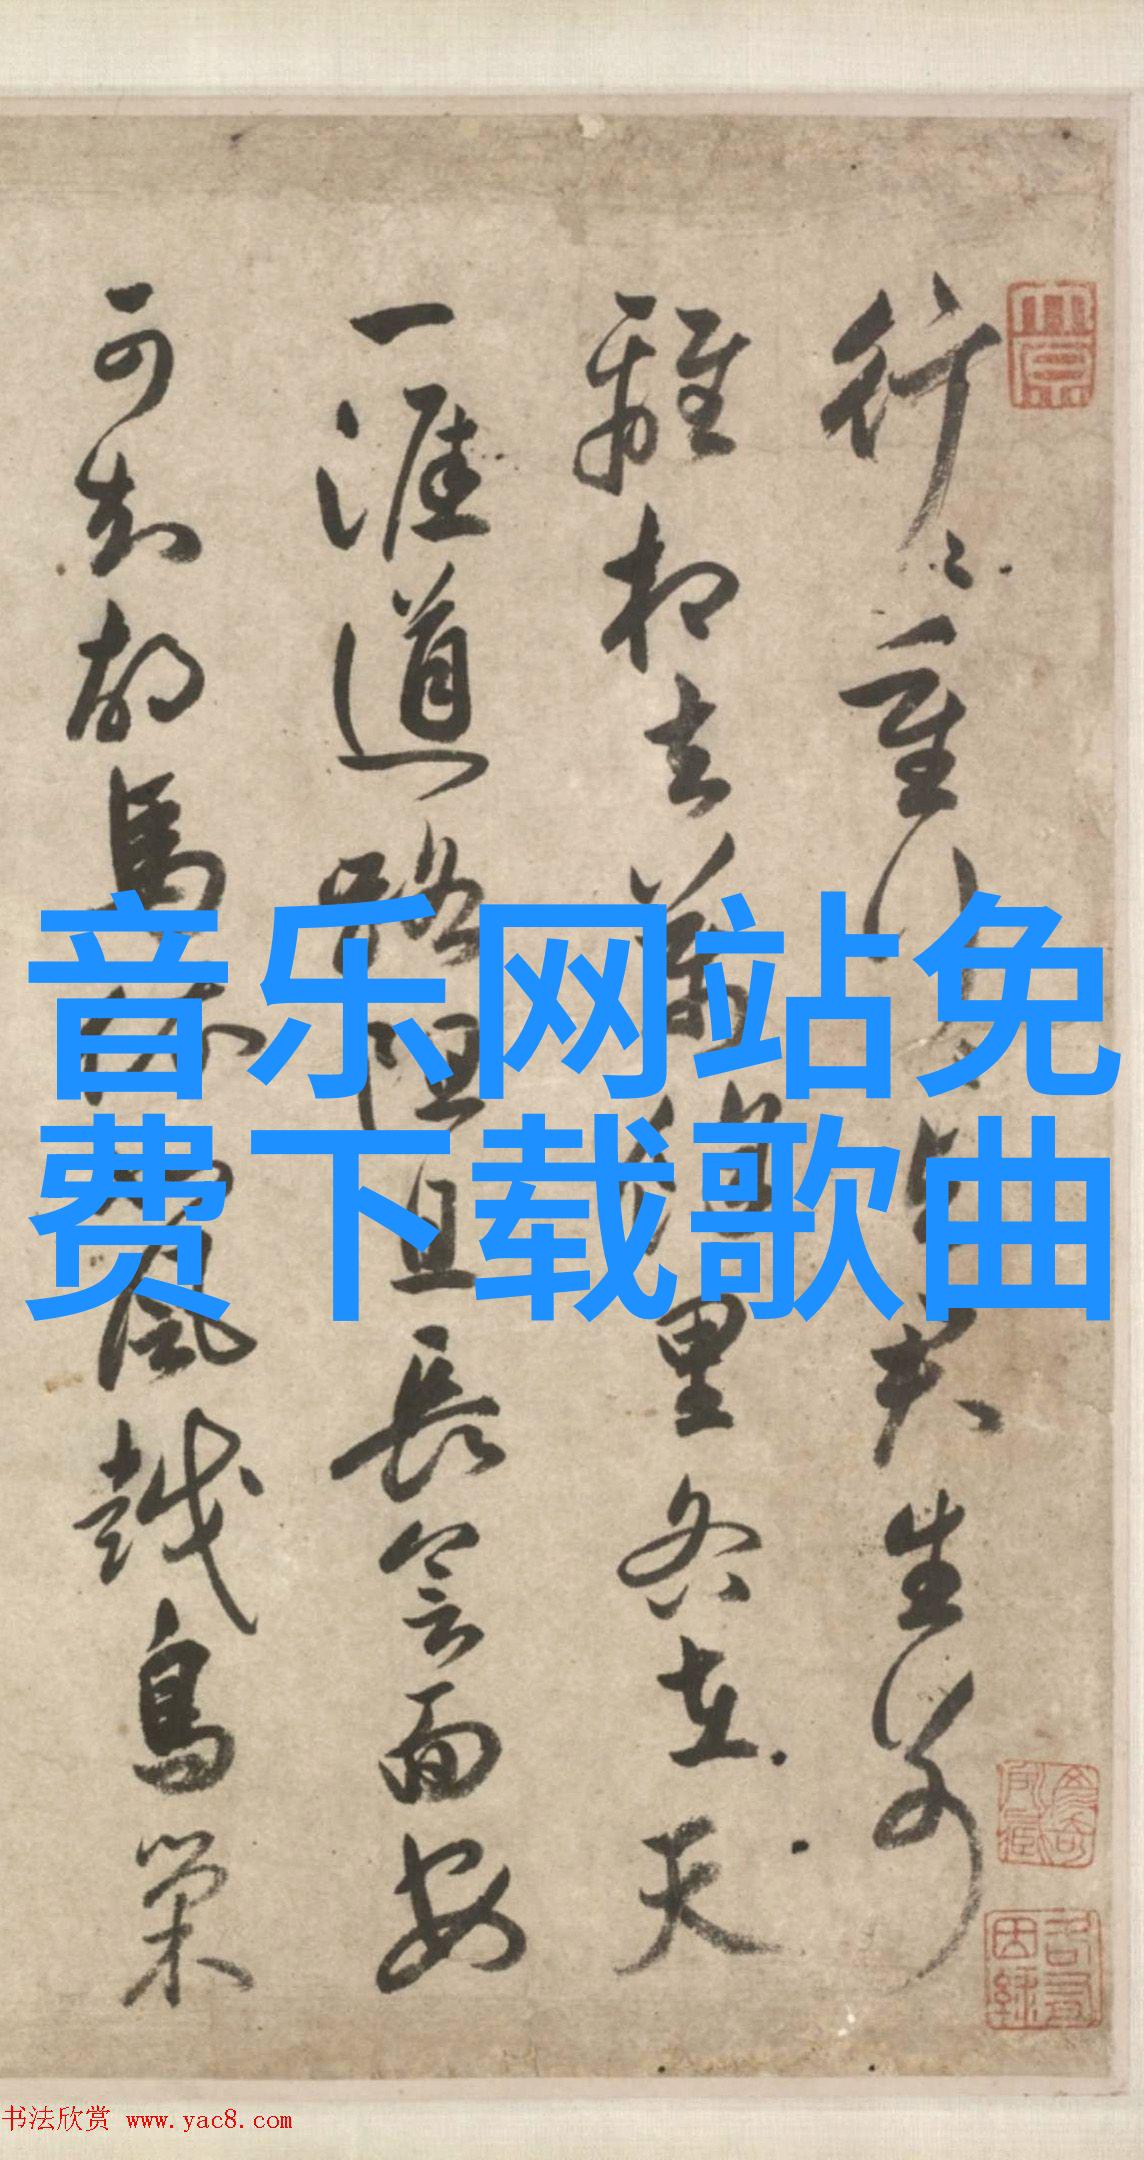 行〻重行〻與君生別
離相去萬餘里各在天
一涯道路阻且長會面安
可知胡馬依北風越鳥巢
音乐网站免
费下载歌曲
书法欣赏 www.yac8.com